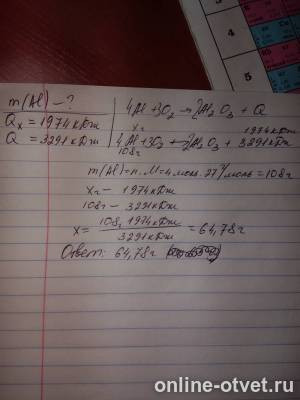 m(Al) - ?
Qx = 1974 кДж
Q = 3291 кДж
4Al + 3O2 = 2Al2O3 + Q
xг 1974 кДж
4Al + 3O2 = 2Al2O3 + 3291 кДж
108г
m(Al) = n · M = 4 моль · 27 г/моль = 108 г
xг - 1974 кДж
108г - 3291 кДж
x = 108г · 1974 кДж / 3291 кДж = 64,78г
Ответ: 64,78г
online-otvet.ru